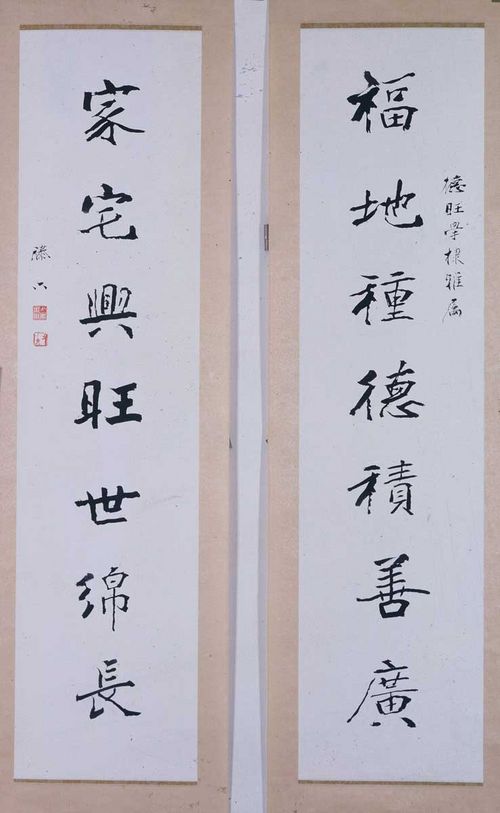 德旺學棣雅屬
福地種德積善廣
家宅興旺世綿長